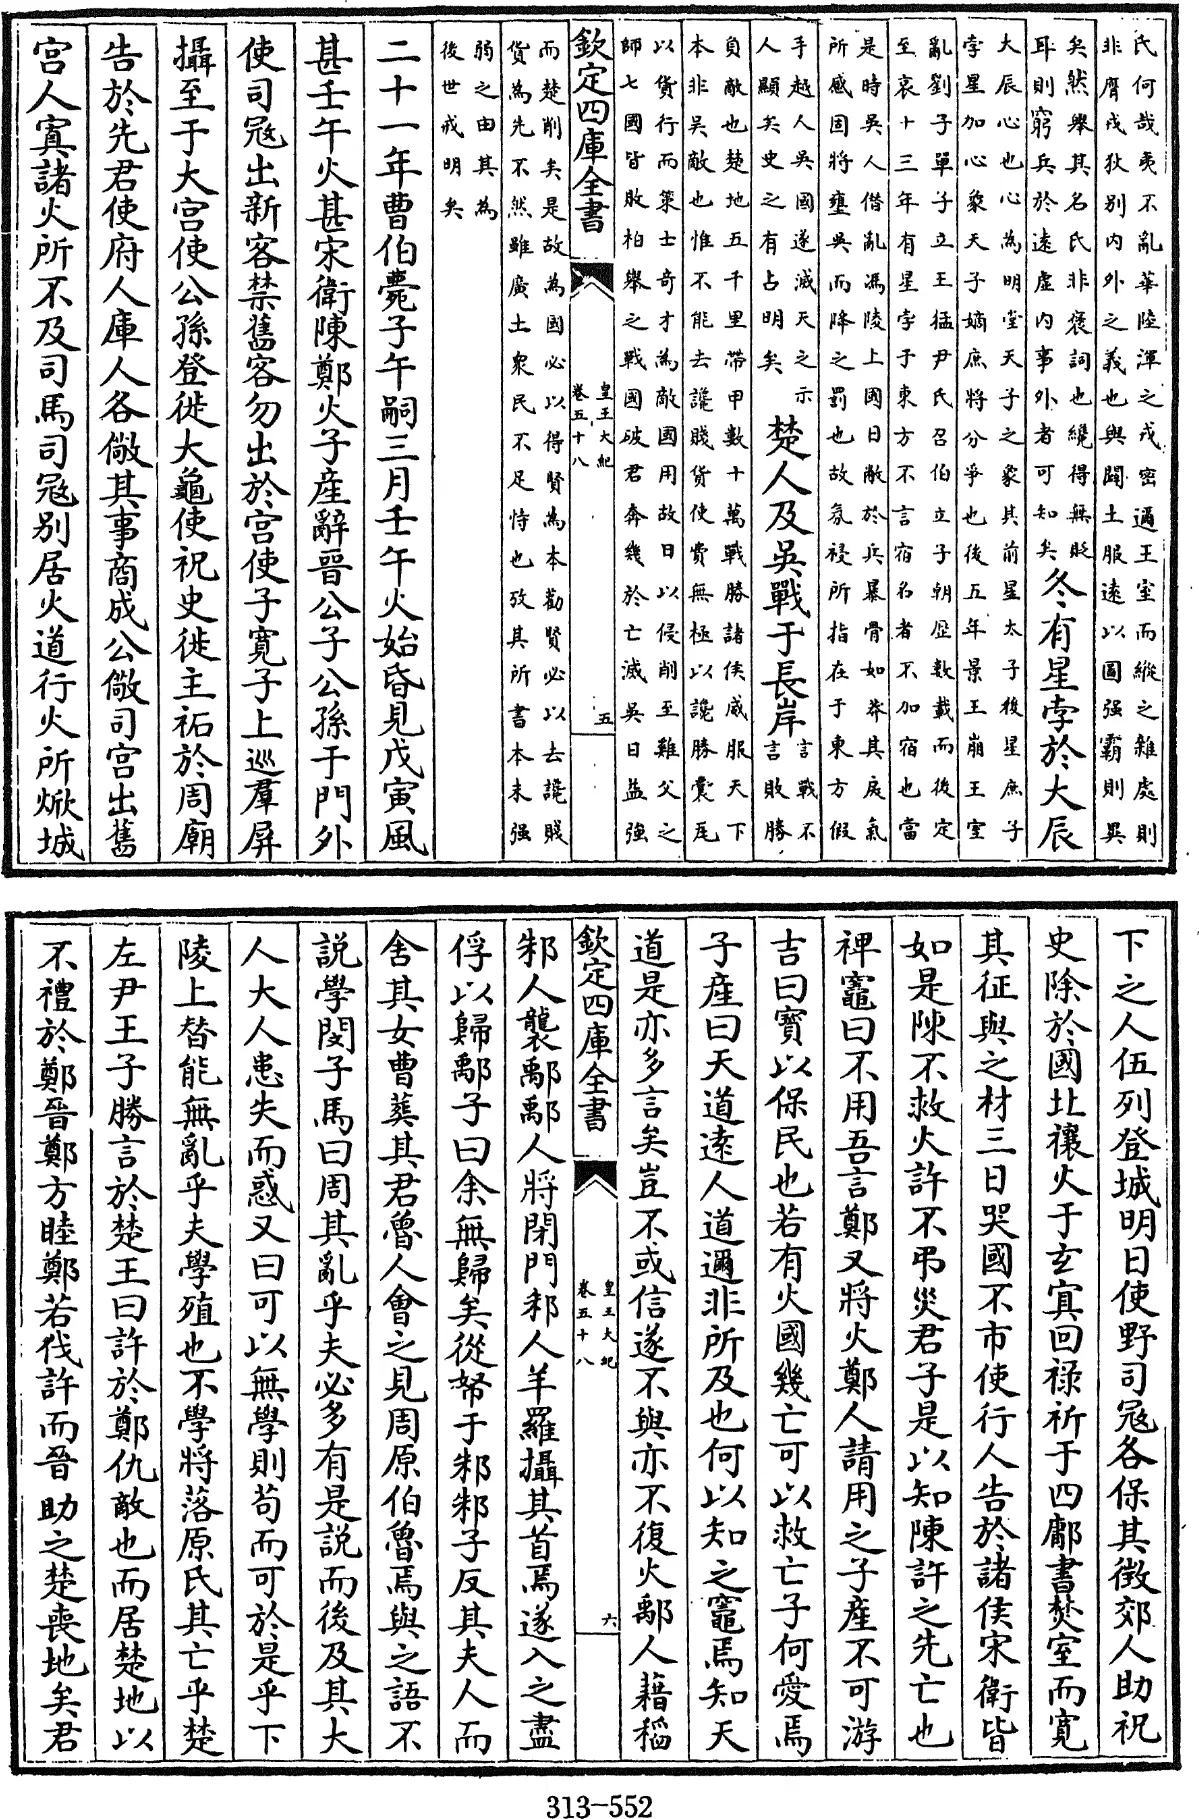 氏何哉夷不亂華陸渾之戎密邇王室而縱之雜處則
非膺戎狄别内外之義也與闢土服遠以圖强霸則異
矣然舉其名氏非褒詞也纔得無貶
耳則窮兵於遠虚内事外者可知矣
冬有星孛於大辰
大辰心也心為明堂天子之象其前星太子後星庶子
孛星加心象天子嫡庶將分爭也後五年景王崩王室
亂劉子單子立王猛尹氏召伯立子朝歴數載而後定
至哀十三年有星孛于東方不言宿名者不加宿也當
是時吳人僣亂馮陵上國日敝於兵暴骨如莽其戾氣
所感固將壅吳而降之罰也故氛祲所指在于東方假
手越人吳國遂滅天之示
人顯矣史之有占明矣
楚人及吳戰于長岸
言戰不
言敗勝
負敵也楚地五千里帶甲數十萬戰勝諸侯威服天下
本非吳敵也惟不能去讒賤貨使費無極以讒勝囊瓦
以貨行而策士奇才為敵國用故日以侵削至雞父之
師七國皆敗柏舉之戰國破君奔幾於亡滅吳日益強
欽定四庫全書
皇王大紀
卷五十八
五
而楚削矣是故為國必以得賢為本勸賢必以去讒賤
貨為先不然雖廣土衆民不足恃也攷其所書本末强
弱之由其為
後世戒明矣
二十一年曹伯薨子午嗣三月壬午火始昏見戊寅風
甚壬午火甚宋衛陳鄭火子產辭晉公子公孫于門外
使司寇出新客禁舊客勿出於宫使子寛子上巡羣屏
攝至于大宫使公孫登徙大龜使祝史徙主祏於周廟
告於先君使府人庫人各儆其事商成公儆司宫出舊
宫人寘諸火所不及司馬司寇别居火道行火所焮城
下之人伍列登城明日使野司寇各保其徴郊人助祝
史除於國北禳火于玄冥回禄祈于四鄘書焚室而寛
其征與之材三日哭國不市使行人告於諸侯宋衛皆
如是陳不救火許不弔災君子是以知陳許之先亡也
裨竈曰不用吾言鄭又將火鄭人請用之子產不可游
吉曰寳以保民也若有火國幾亡可以救亡子何愛焉
子產曰天道逺人道邇非所及也何以知之竈焉知天
道是亦多言矣豈不或信遂不與亦不復火鄅人藉稻
欽定四庫全書
皇王大紀
卷五十八
六
邾人襲鄅鄅人將閉門邾人羊羅攝其首焉遂入之盡
俘以歸鄅子曰余無歸矣從帑于邾邾子反其夫人而
舍其女曹葬其君魯人會之見周原伯魯焉與之語不
説學閔子馬曰周其亂乎夫必多有是説而後及其大
人大人患失而惑又曰可以無學則苟而可於是乎下
陵上替能無亂乎夫學殖也不學將落原氏其亡乎楚
左尹王子勝言於楚王曰許於鄭仇敵也而居楚地以
不禮於鄭晉鄭方睦鄭若伐許而晉助之楚喪地矣君
313-552